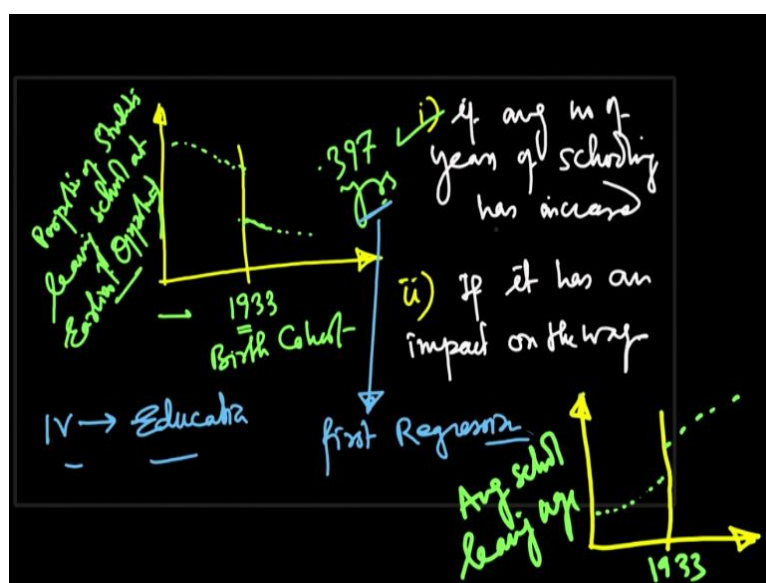 Students
leaving school at
Earliest
1933
Birth Cohort
.397
yrs
i) if avg no of
years of schooling
has increased
ii) If it has an
impact on the wage
IV → Education
first Regression
Avg school
leaving age
1933